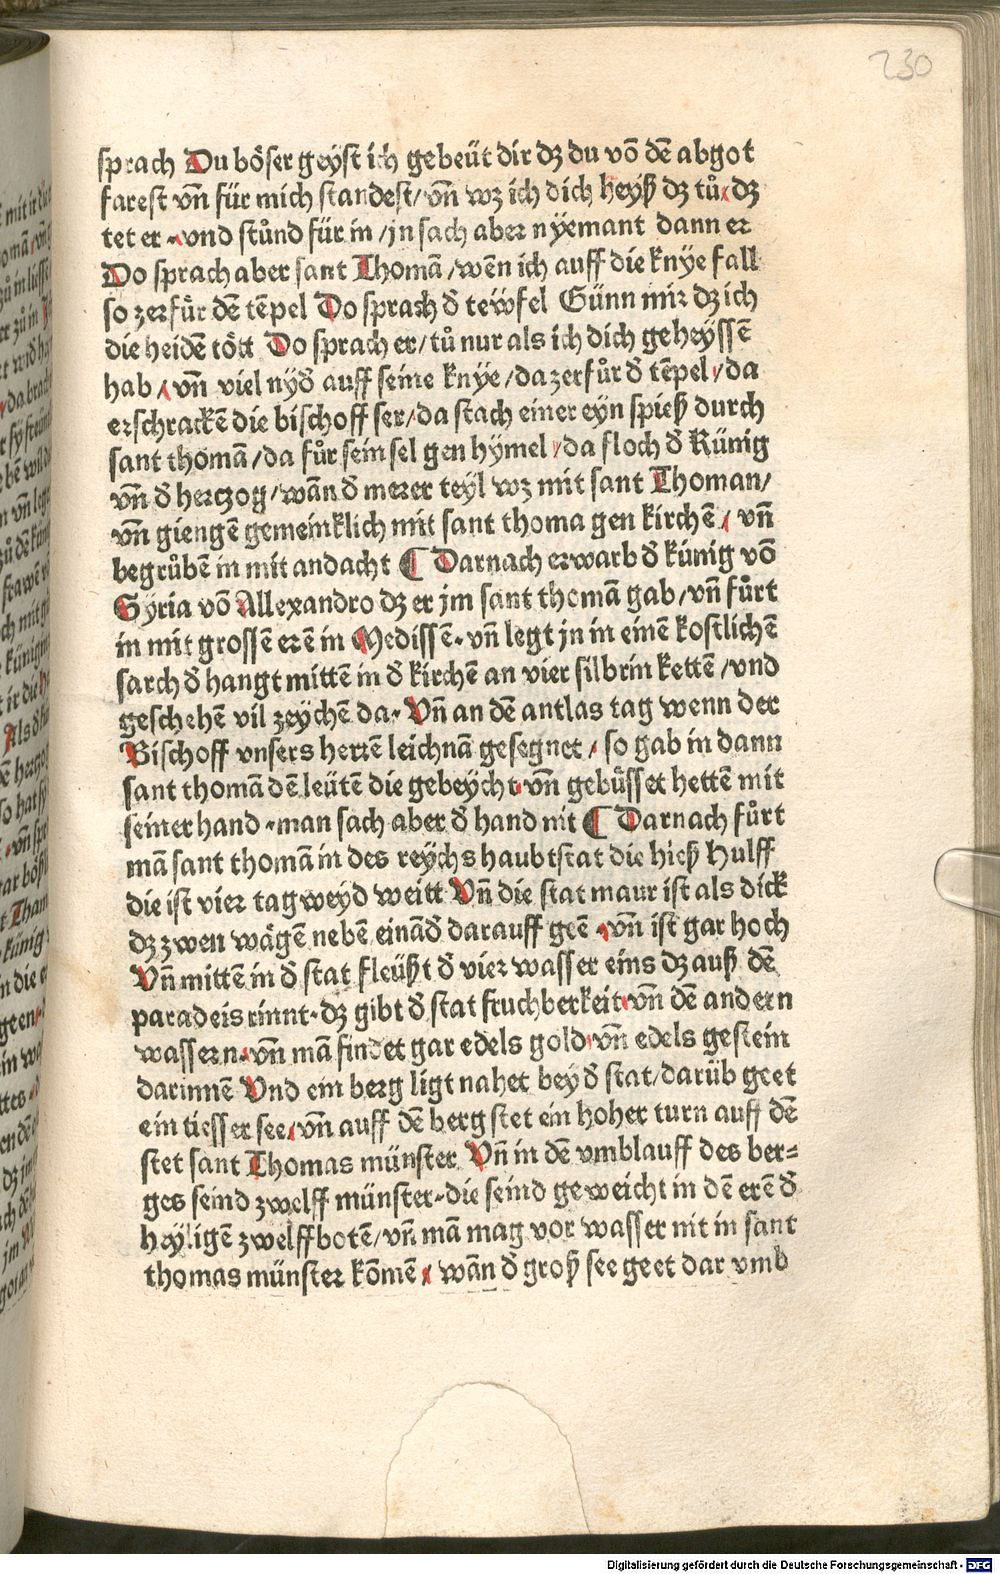 230
sprach Du böser geyst ich gebeüt dir dz du vō dē abgot
farest vn̄ für mich standest/ vn̄ wz ich dich heyß dz tů/ dz
tet er · vnd stůnd für in /jn sach aber nyemant dann er
Do sprach aber sant Thomā /wēn ich auff die knye fall
so zerfůr dē tēpel Do sprach d̄ teẅfel Günn mir dz ich
die heidē tött Do sprach er/ tů nur als ich dich geheyssē
hab / vn̄ viel nyd̄ auff seine knye /da zerfůr d̄ tēpel/ da
erschrackē die bischoff ser/ da stach einer eyn spieß durch
sant thomā /da fůr sein sel gen hymel / da floch d̄ Künig
vn̄ d̄ hertzog/ wān d̄ merer teyl wz mit sant Thoman/
vn̄ giengē gemeinklich mit sant thoma gen kirchē / vn̄
begrůbē in mit andacht ¶ Darnach erwarb d̄ künig vō
Syria vō Allexandro dz er jm sant thomā gab/ vn̄ fůrt
in mit grossē erē in Medissē · vn̄ legt jn in einē kostlichē
sarch d̄ hangt mittē in d̄ kirchē an vier silbrin kettē /vnd
geschehē vil zeychē da· Vn̄ an dē antlas tag wenn der
Bischoff vnsers herrē leichnā gesegnet / so gab in dann
sant thomā dē leütē die gebeycht · vn̄ gebüsset hettē mit
seiner hand · man sach aber d̄ hand nit ¶ Darnach fůrt
mā sant thomā in des reychs haubtstat die hieß Hulff
die ist vier tagweyd weitt Vn̄ die stat maur ist als dick
dz zwen wägē nebē einād̄ darauff geē · vn̄ ist gar hoch
Vn̄ mittē in d̄ stat fleüßt d̄ vier wasser eins dz auß dē
paradeis rinnt· dz gibt d̄ stat fruchberkeit · vn̄ dē andern
wassern · vn̄ mā findet gar edels gold · vn̄ edels gestein
darinnē Vnd ein berg ligt nahet bey d̄ stat/ darüb geet
ein tieffer see/ vn̄ auff dē berg stet ein hoher turn auff dē
stet sant Thomas münster Vn̄ in dē vmblauff des ber-
ges seind zwelff münster· die seind geweicht in dē erē d̄
heyligē zwelffbotē/ vn̄ mā mag vor wasser nit in sant
thomas münster kōmē / wān d̄ groß see geet dar vmb
Digitalisierung gefördert durch die Deutsche Forschungsgemeinschaft - DFG